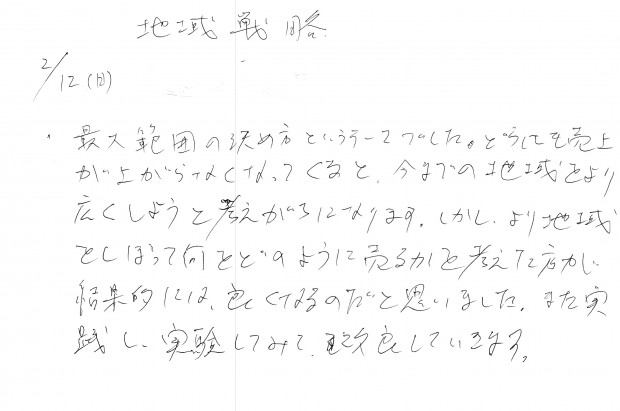 地域戦略
2/12(日)
・最大範囲の決め方というテーマでした。どうしても売上
が上がらなくなってくると、今までの地域をより
広くしようと考えがちになります。しかし、より地域
をしぼって何をどのように売るかを考えた方が
結果的には、良くなるのだと思いました。また実
践し、実験してみて、改良していきます。